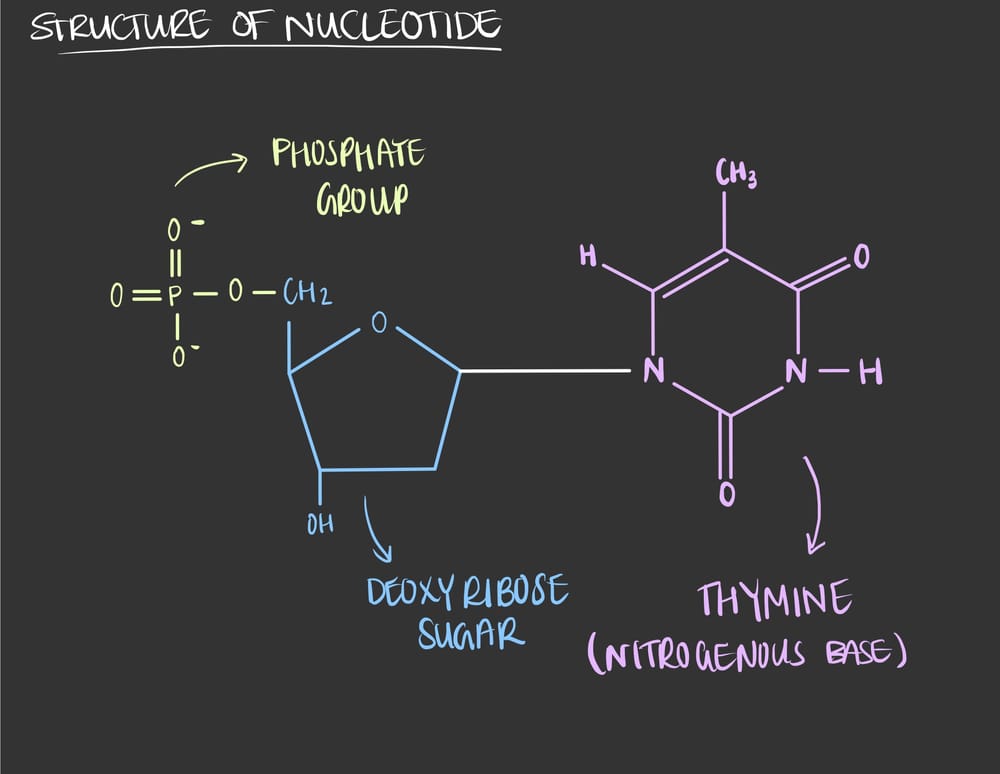 STRUCTURE OF NUCLEOTIDE
PHOSPHATE
GROUP
CH3
O-
H
O
O=P-O-CH2
O
O-
N
N-H
O
OH
DEOXYRIBOSE
SUGAR
THYMINE
(NITROGENOUS BASE)